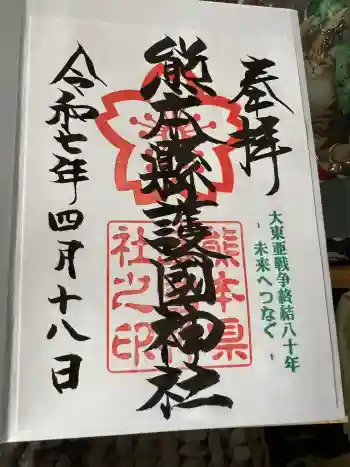 奉拝
大東亜戦争終結八十年
- 未来へつなぐ -
熊本縣護國神社
熊本県
護國神
社之印
令和七年四月十八日